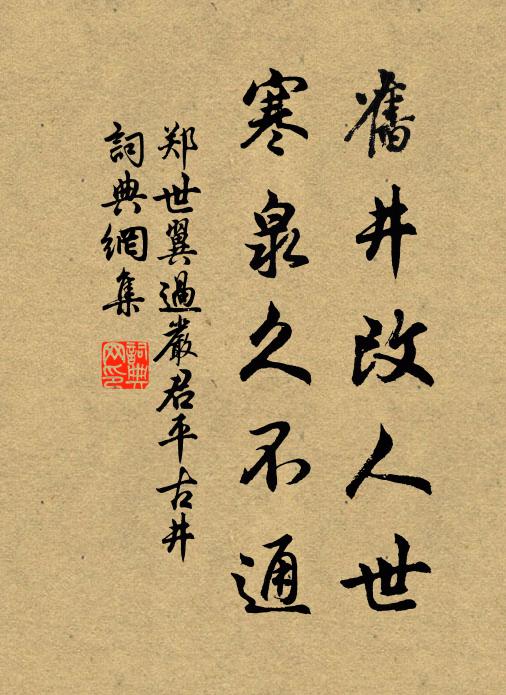 舊井改人世
寒泉久不通
郑世翼過嚴君平古井
詞典網集
詞典网印